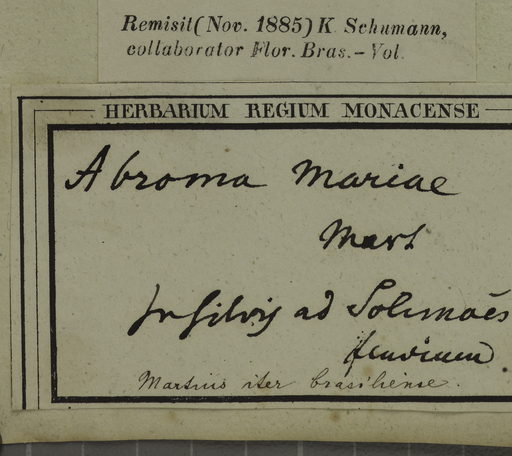 Remisit (Nov. 1885) K Schumann,
collaborator Flor. Bras. – Vol.
HERBARIUM REGIUM MONACENSE
Abroma Mariae
Mart
In silvis ad Solimoës
fluvium
Martius iter brasiliense.